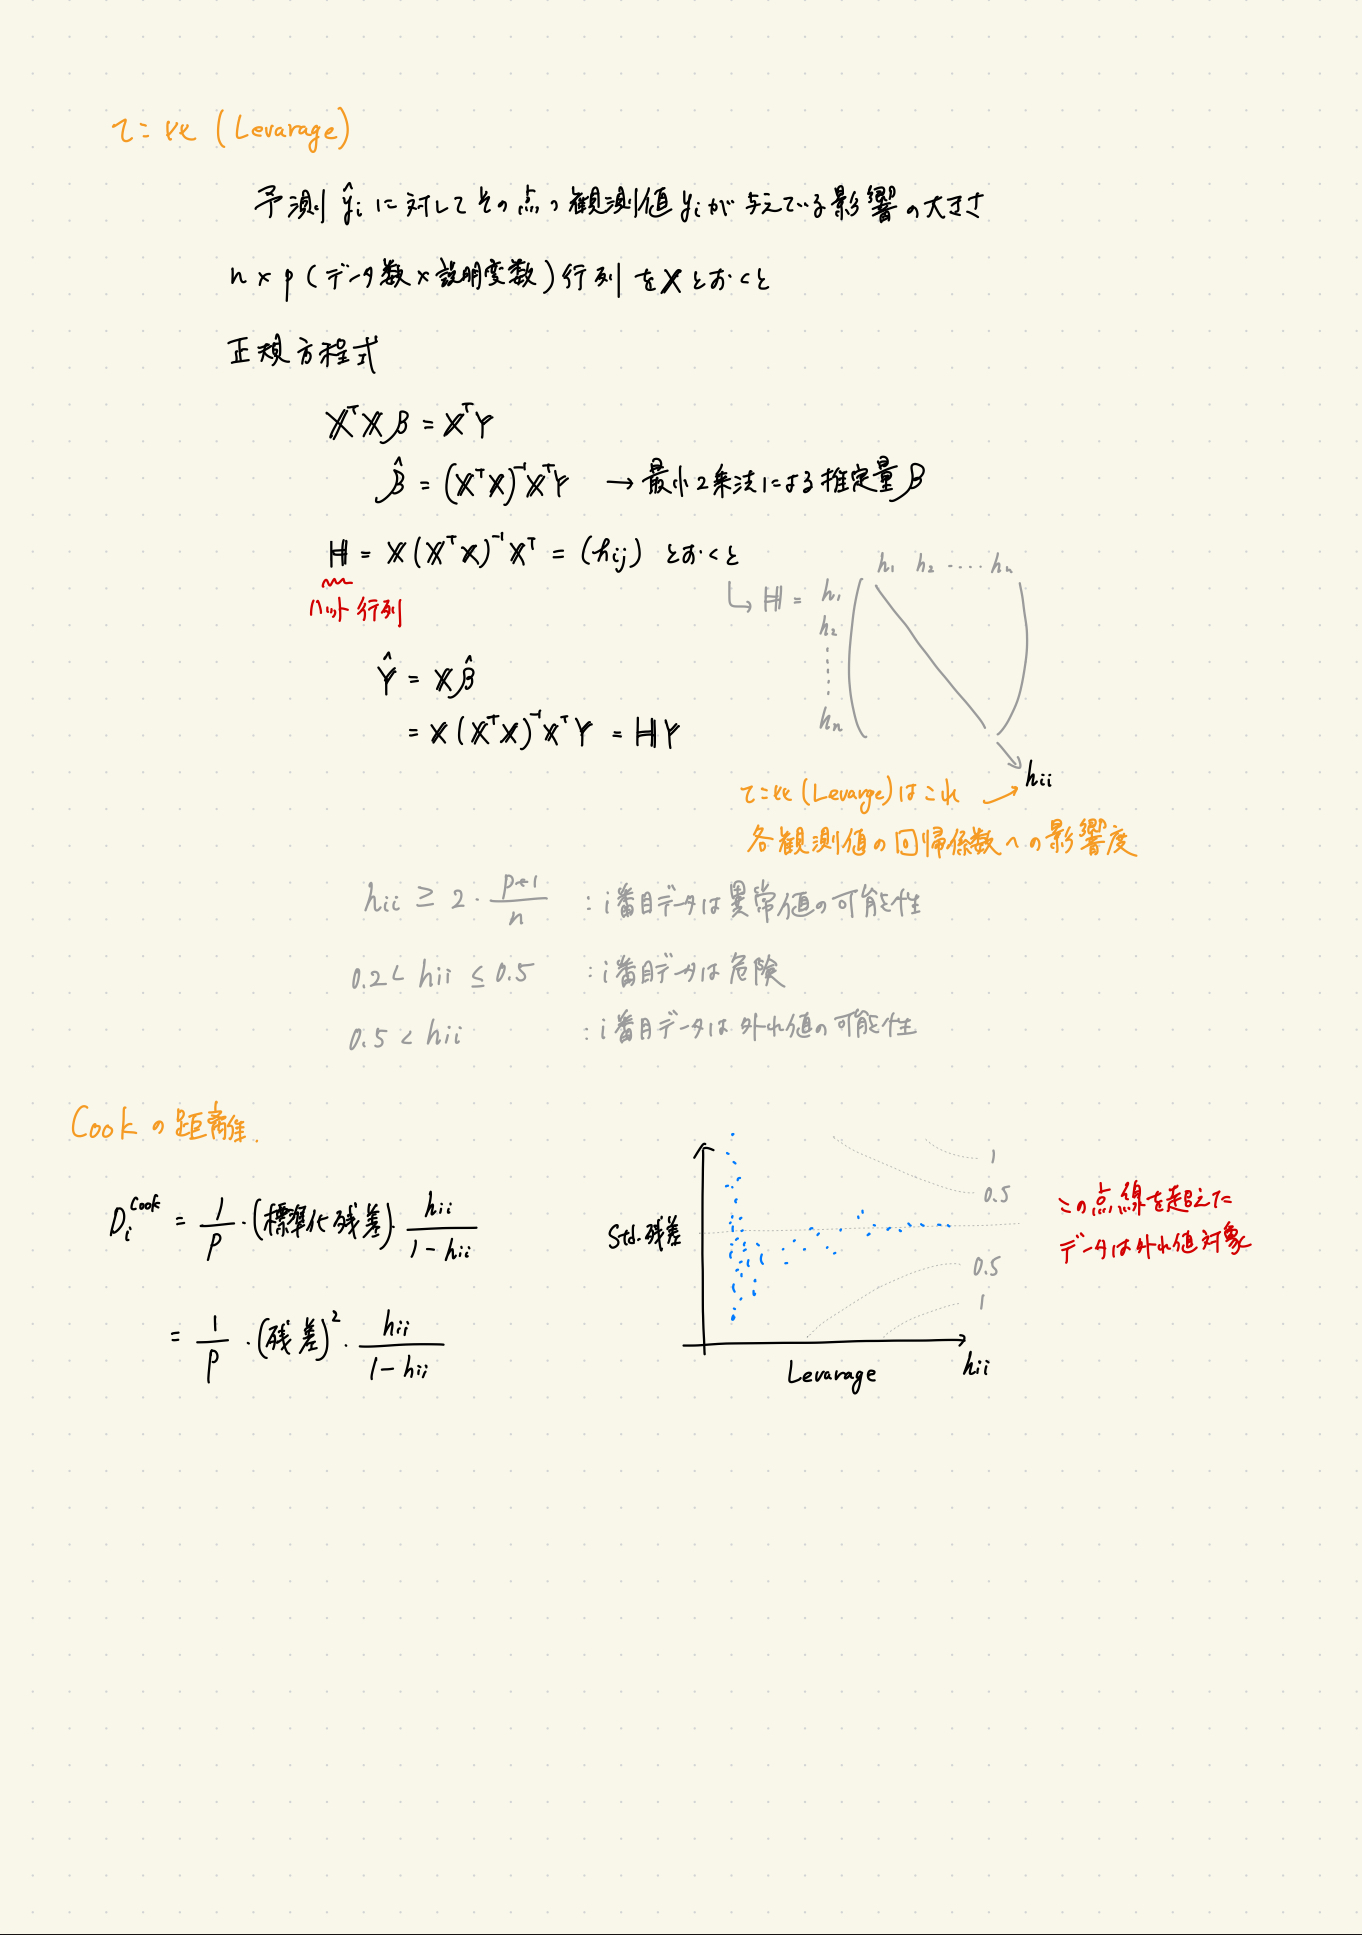 てこ比 (Levarage)
予測 ŷi に対してその点の観測値 yi が与えている影響の大きさ
n × p (データ数 × 説明変数) 行列を X とおくと
正規方程式
XᵀXβ = XᵀY
β̂ = (XᵀX)⁻¹XᵀY → 最小2乗法による推定量 β
H = X(XᵀX)⁻¹Xᵀ = (hij) とおくと
ハット行列
h1 h2 ····· hn
↳ H = h1
h2
hn
Ŷ = Xβ̂
= X(XᵀX)⁻¹XᵀY = HY
hii
てこ比 (Levarge) はこれ
各観測値の回帰係数への影響度
hii ≥ 2 · (p+1)/n : i番目データは異常値の可能性
0.2 < hii ≤ 0.5 : i番目データは危険
0.5 < hii : i番目データは外れ値の可能性
Cook の距離.
Di^Cook = 1/p · (標準化残差) · hii/(1-hii)
= 1/p · (残差)² · hii/(1-hii)
1
0.5
Std.残差
0.5
1
Levarage hii
この点線を超えた
データは外れ値対象